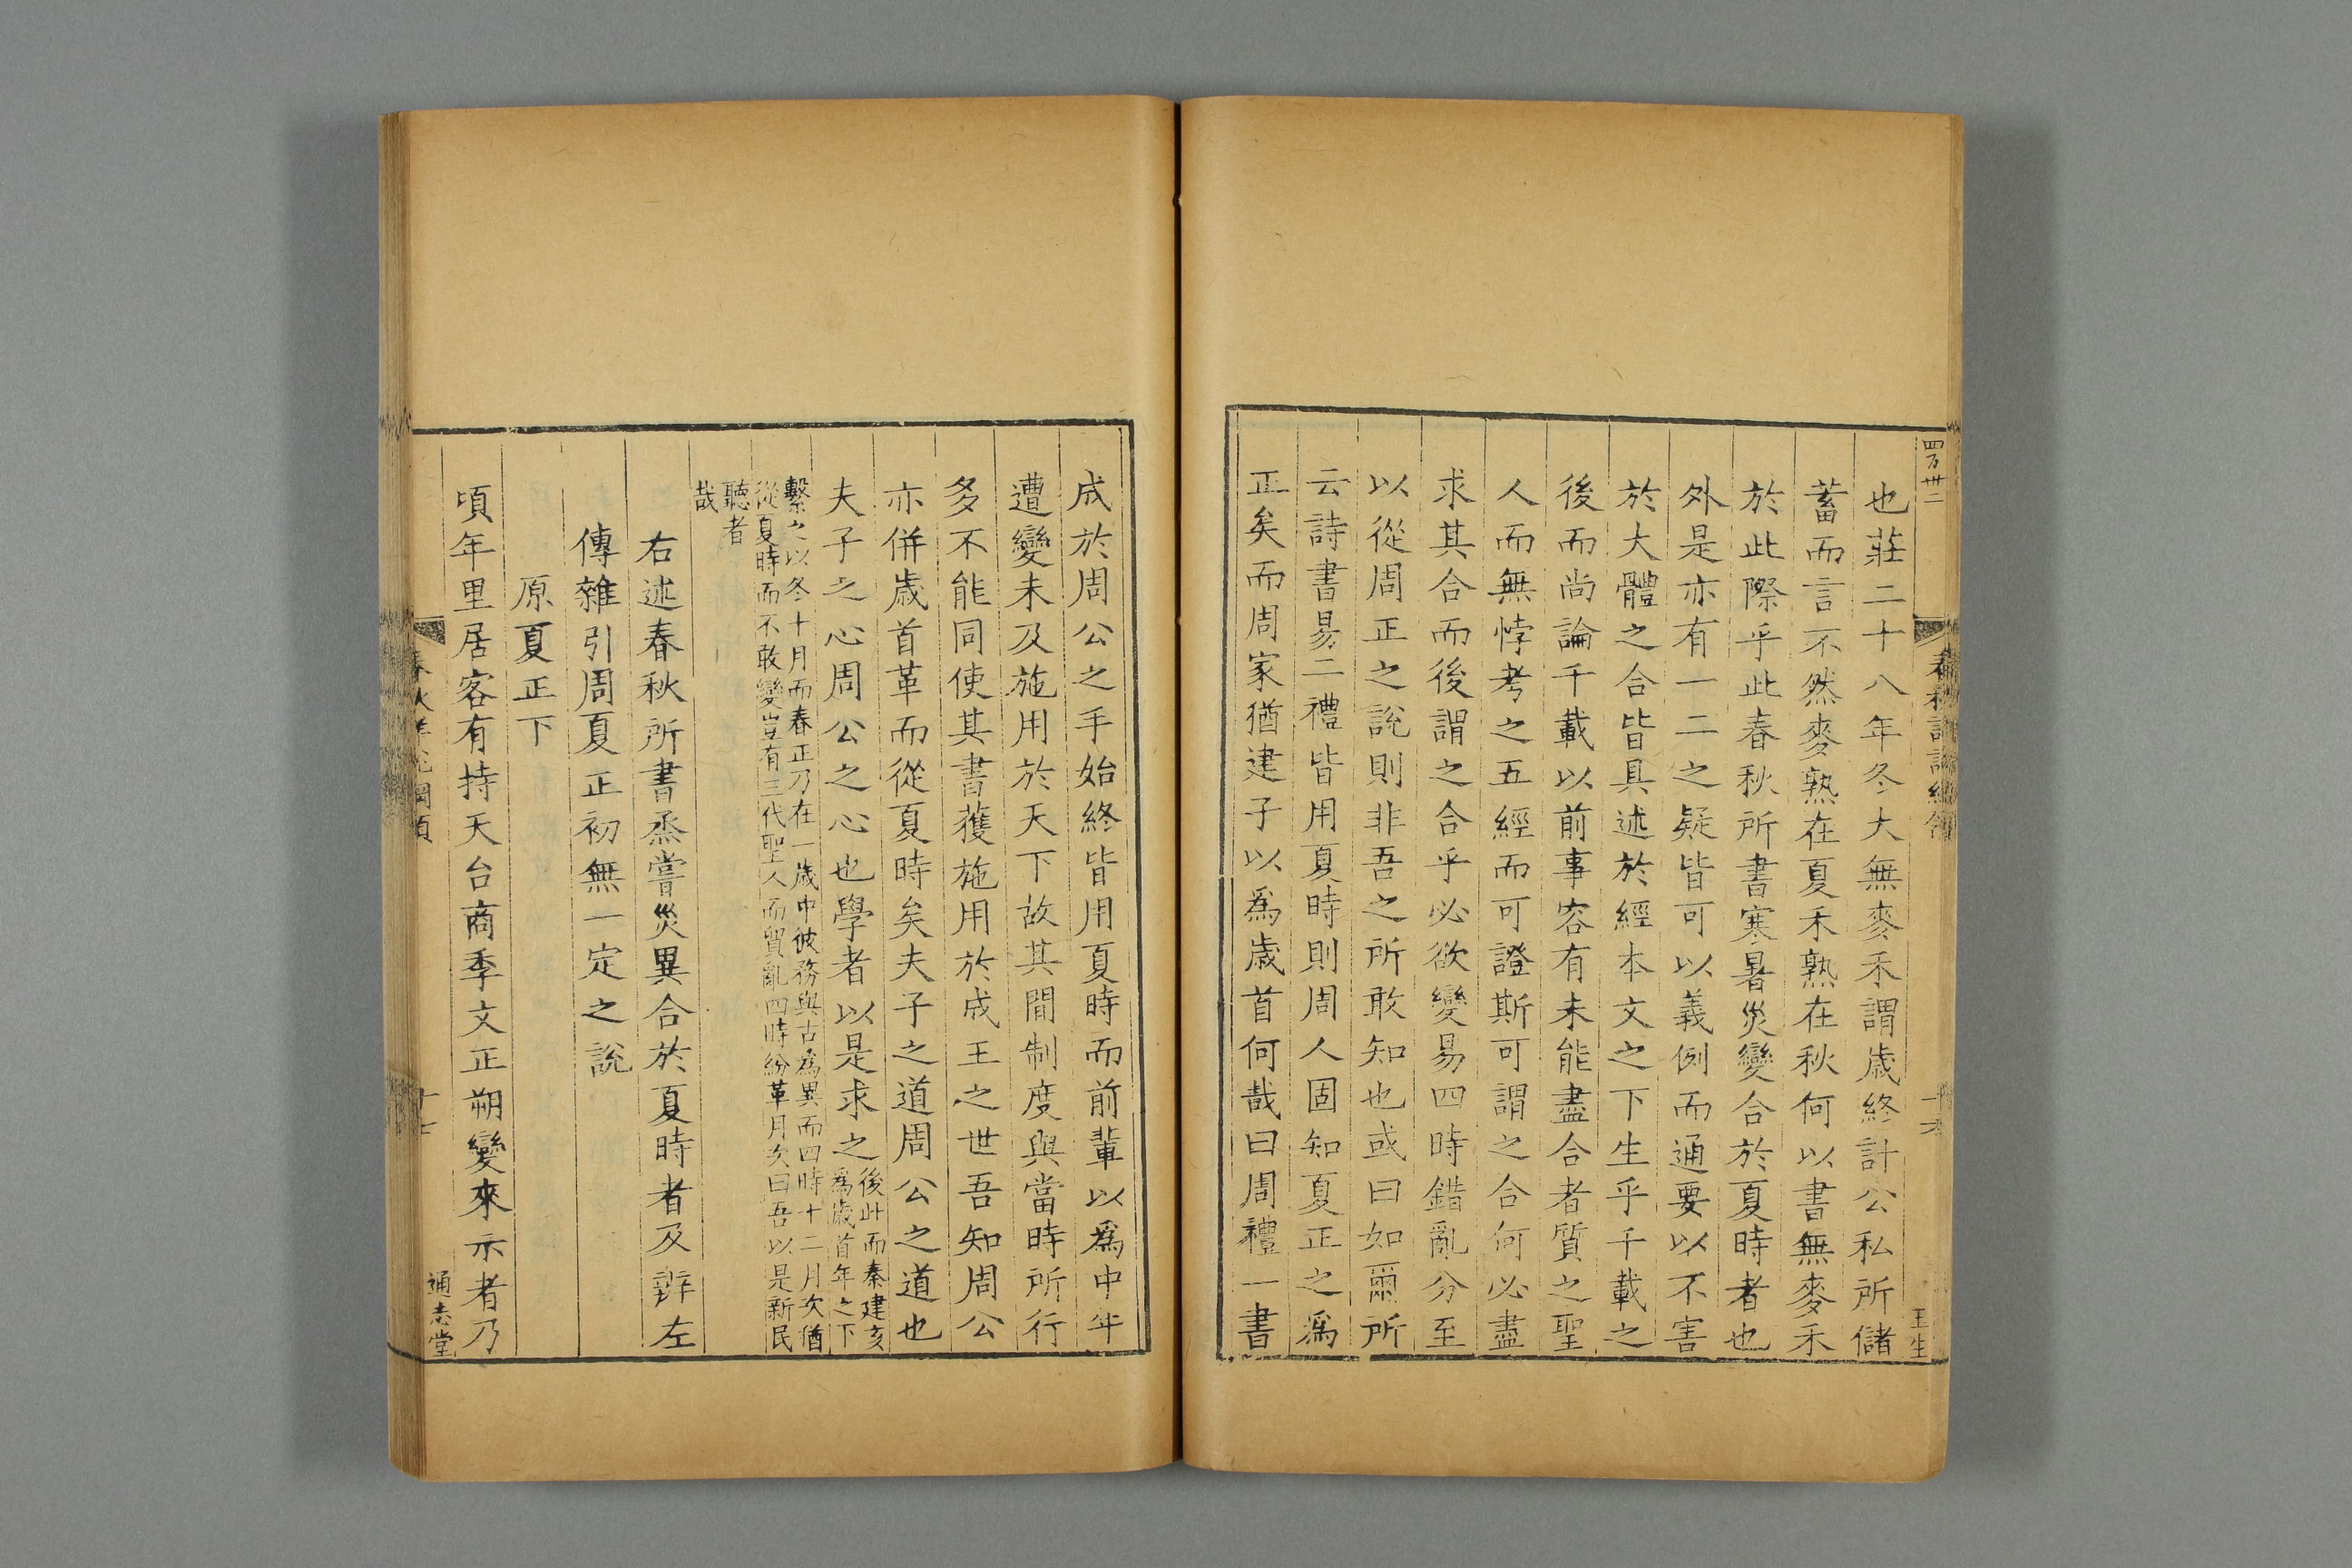 四万卅二
王生
也莊二十八年冬大無麥禾謂歲終計公私所儲
蓄而言不然麥熟在夏禾熟在秋何以書無麥禾
於此際乎此春秋所書寒暑災變合於夏時者也
外是亦有一二之疑皆可以義例而通要以不害
於大體之合皆具述於經本文之下生乎千載之
後而尚論千載以前事容有未能盡合者質之聖
人而無悖考之五經而可證斯可謂之合何必盡
求其合而後謂之合乎必欲變易四時錯亂分至
以從周正之說則非吾之所敢知也或曰如爾所
云詩書易二禮皆用夏時則周人固知夏正之爲
正矣而周家猶建子以爲歲首何哉曰周禮一書
成於周公之手始終皆用夏時而前輩以爲中年
遭變未及施用於天下故其間制度與當時所行
多不能同使其書獲施用於成王之世吾知周公
亦併歲首革而從夏時矣夫子之道周公之道也
夫子之心周公之心也學者以是求之後此而秦建亥
爲歲首年之下
繫之以冬十月而春正乃在一歲中彼務與古爲異而四時十二月次猶
從夏時而不敢變豈有三代聖人而貿亂四時紛革月次曰吾以是新民
聽者
哉
右述春秋所書烝嘗災異合於夏時者及辨左
傳雜引周夏正初無一定之說
原夏正下
頃年里居客有持天台商季文正朔變來示者乃
通志堂